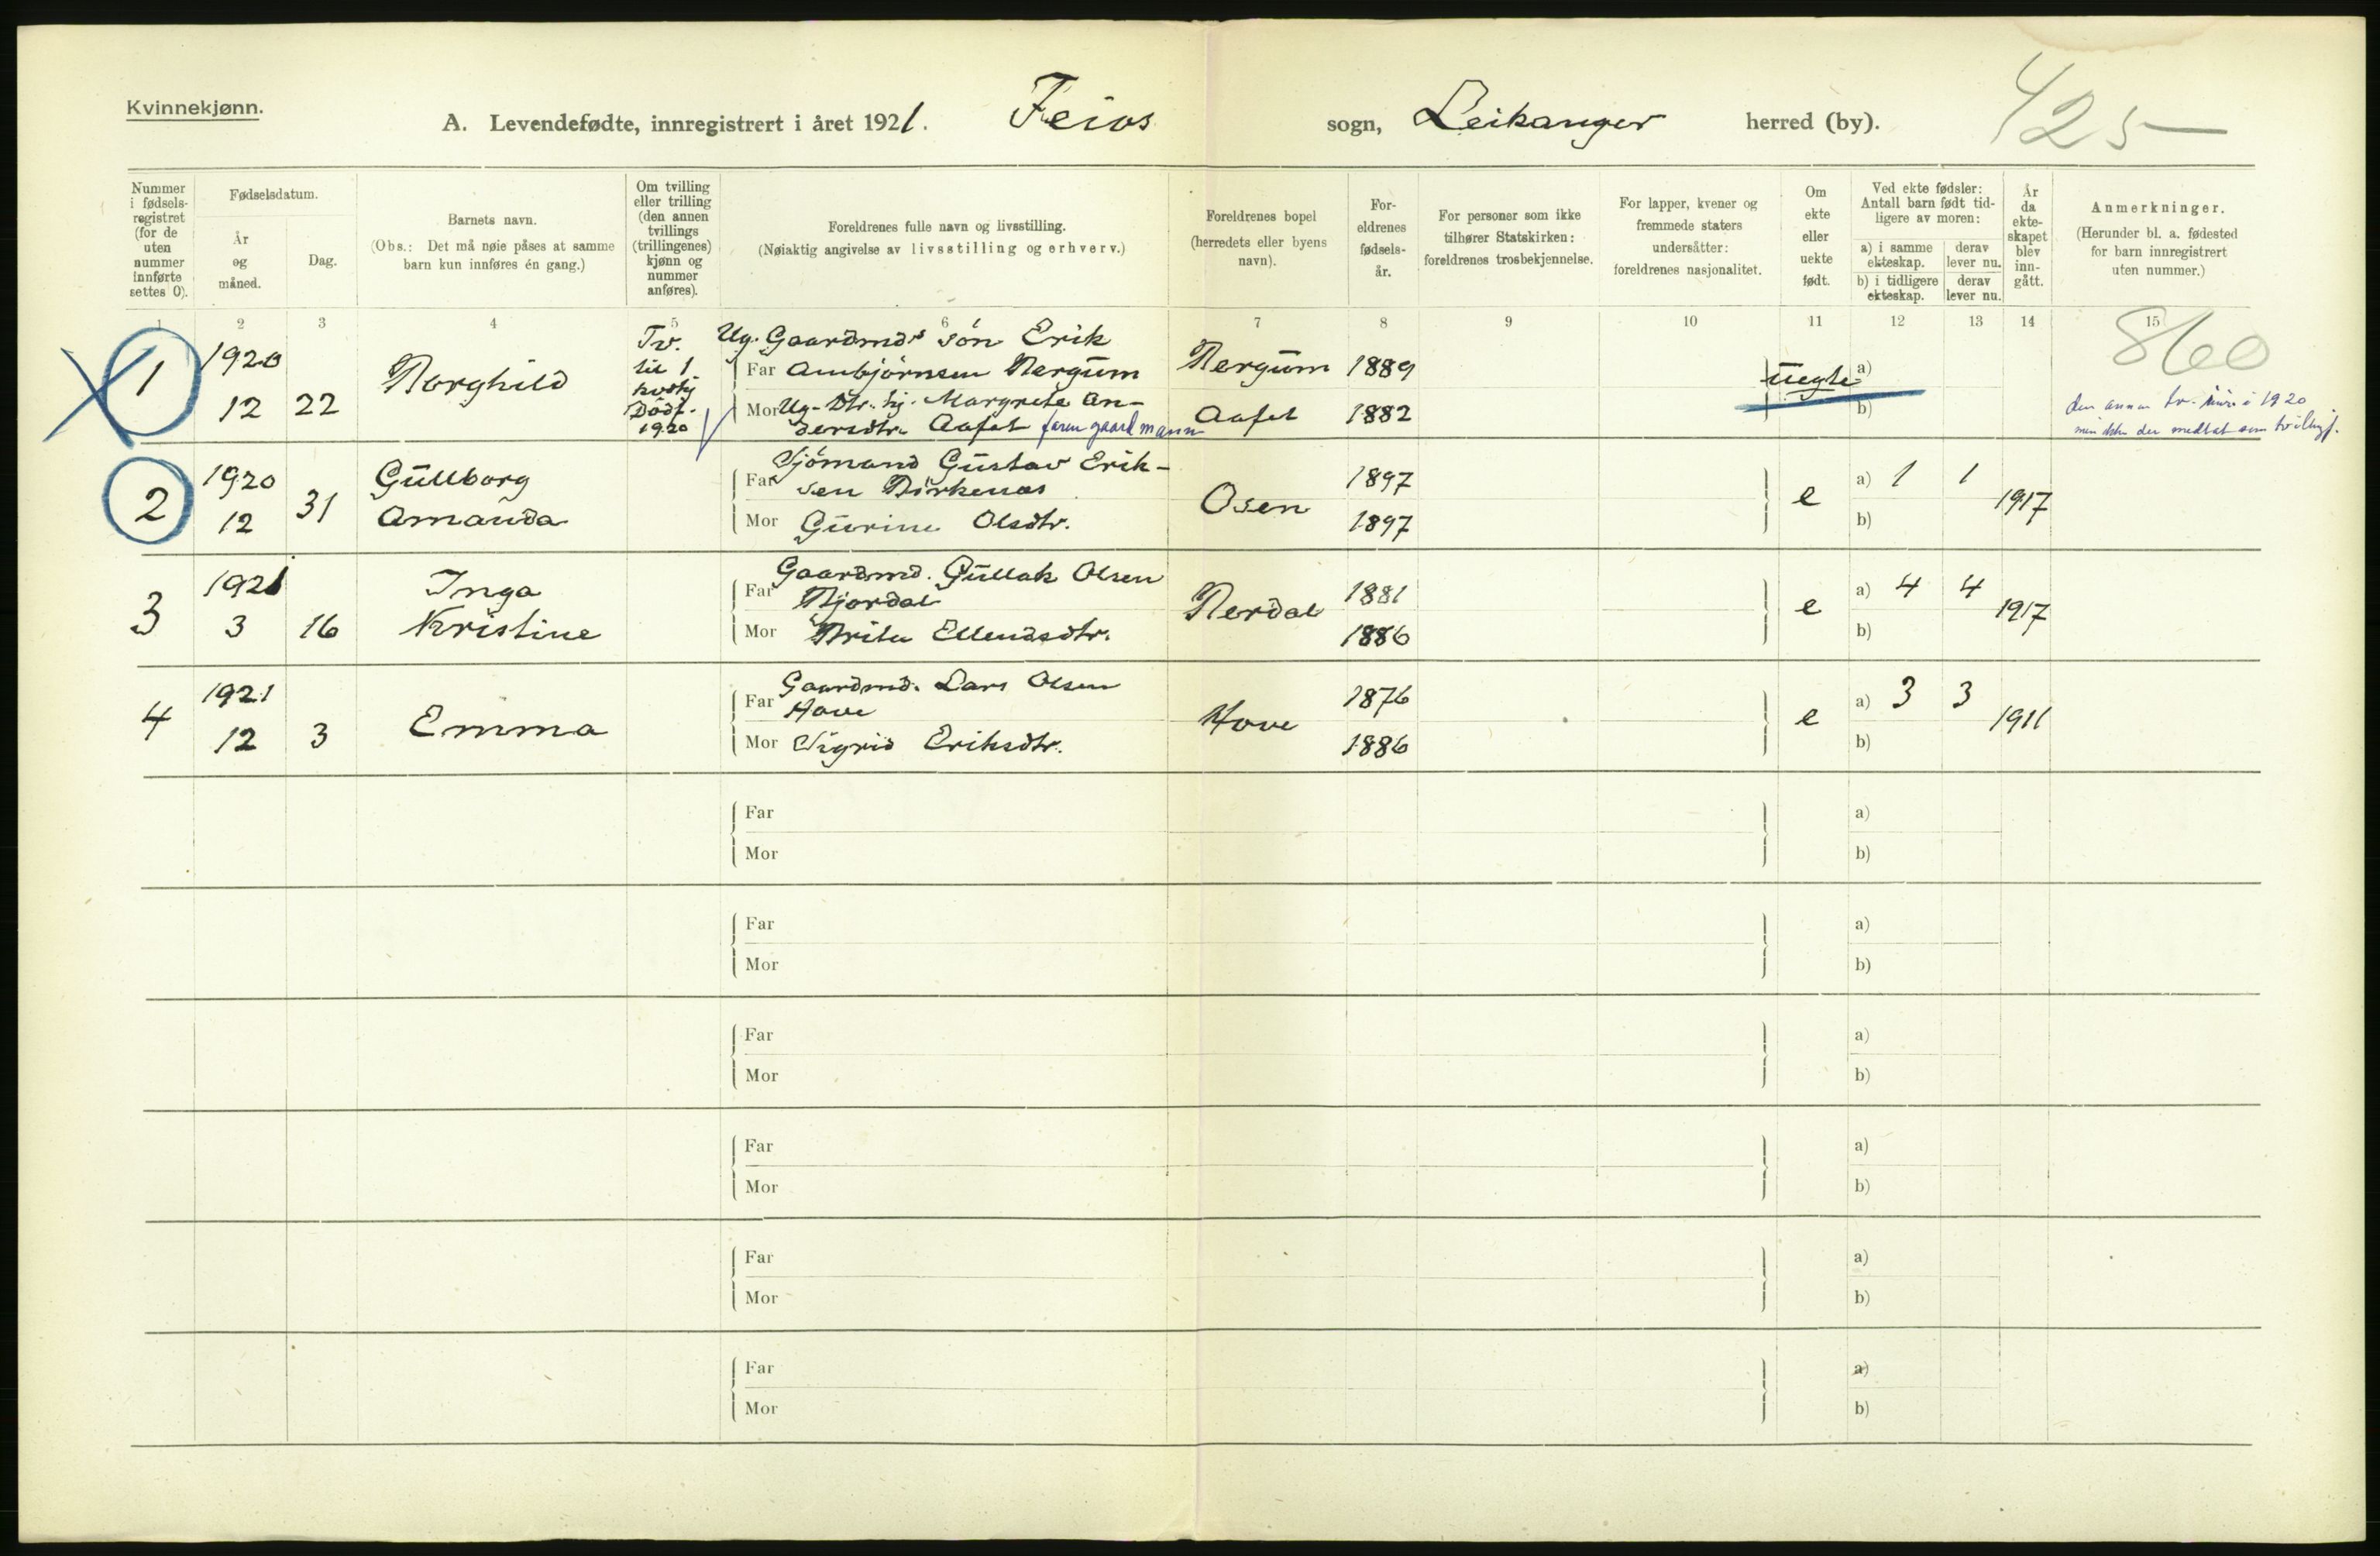 Kvinnekjønn.
A. Levendefødte, innregistrert i året 1921. Feios sogn, Leikanger herred (by). 425
Nummer i fødselsregistret (for de uten nummer innførte settes 0).
Fødselsdatum.
År og måned.
Dag.
Barnets navn.
(Obs.: Det må nøie påses at samme barn kun innføres én gang.)
Om tvilling eller trilling (den annen tvillings (trillingenes) kjønn og nummer anføres).
Foreldrenes fulle navn og livsstilling.
(Nøiaktig angivelse av livsstilling og erhverv.)
Foreldrenes bopel (herredets eller byens navn).
Foreldrenes fødselsår.
For personer som ikke tilhører Statskirken: foreldrenes trosbekjennelse.
For lapper, kvener og fremmede staters undersåtter: foreldrenes nasjonalitet.
Om ekte eller uekte født.
Ved ekte fødsler: Antall barn født tidligere av moren:
a) i samme ekteskap. derav lever nu.
b) i tidligere ekteskap. derav lever nu.
År da ekteskapet blev inngått.
Anmerkninger.
(Herunder bl. a. fødested for barn innregistrert uten nummer.)
1 2 3 4 5 6 7 8 9 10 11 12 13 14 15
860
1 1920 12 22 Borghild
Tv. til 1 Dödf. 1920
Ug. Gaardmds sön Erik
Far Ambjörnsen Bergum Bergum 1889
Mor Ug. Dtr. hj. Margrete An-
dersdtr. Aafet faren gaardmann Aafet 1882
uegte a) b)
den annen tv. i 1920
2 1920 12 31 Gullborg Amanda
Sjömand Gustav Erik-
Far sen Birkenes 1897
Mor Gurine Olsdtr. Osen 1897
e a) 1 1 b) 1917
3 1921 3 16 Inga Kristine
Gaardmd. Gullak Olsen
Far Njordal 1881
Mor Brita Ellendsdtr. Nerdal 1886
e a) 4 4 b) 1917
4 1921 12 3 Emma
Gaardmd. Lars Olsen
Far Hove 1876
Mor Sigrid Eriksdtr. Hove 1886
e a) 3 3 b) 1911
Far a)
Mor b)
Far a)
Mor b)
Far a)
Mor b)
Far a)
Mor b)
Far a)
Mor b)
Far a)
Mor b)